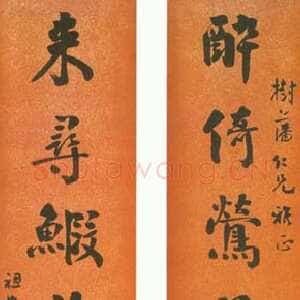 樹藩仁兄雅正
醉倚鶯
来尋鰕
祖
shufawang.cn